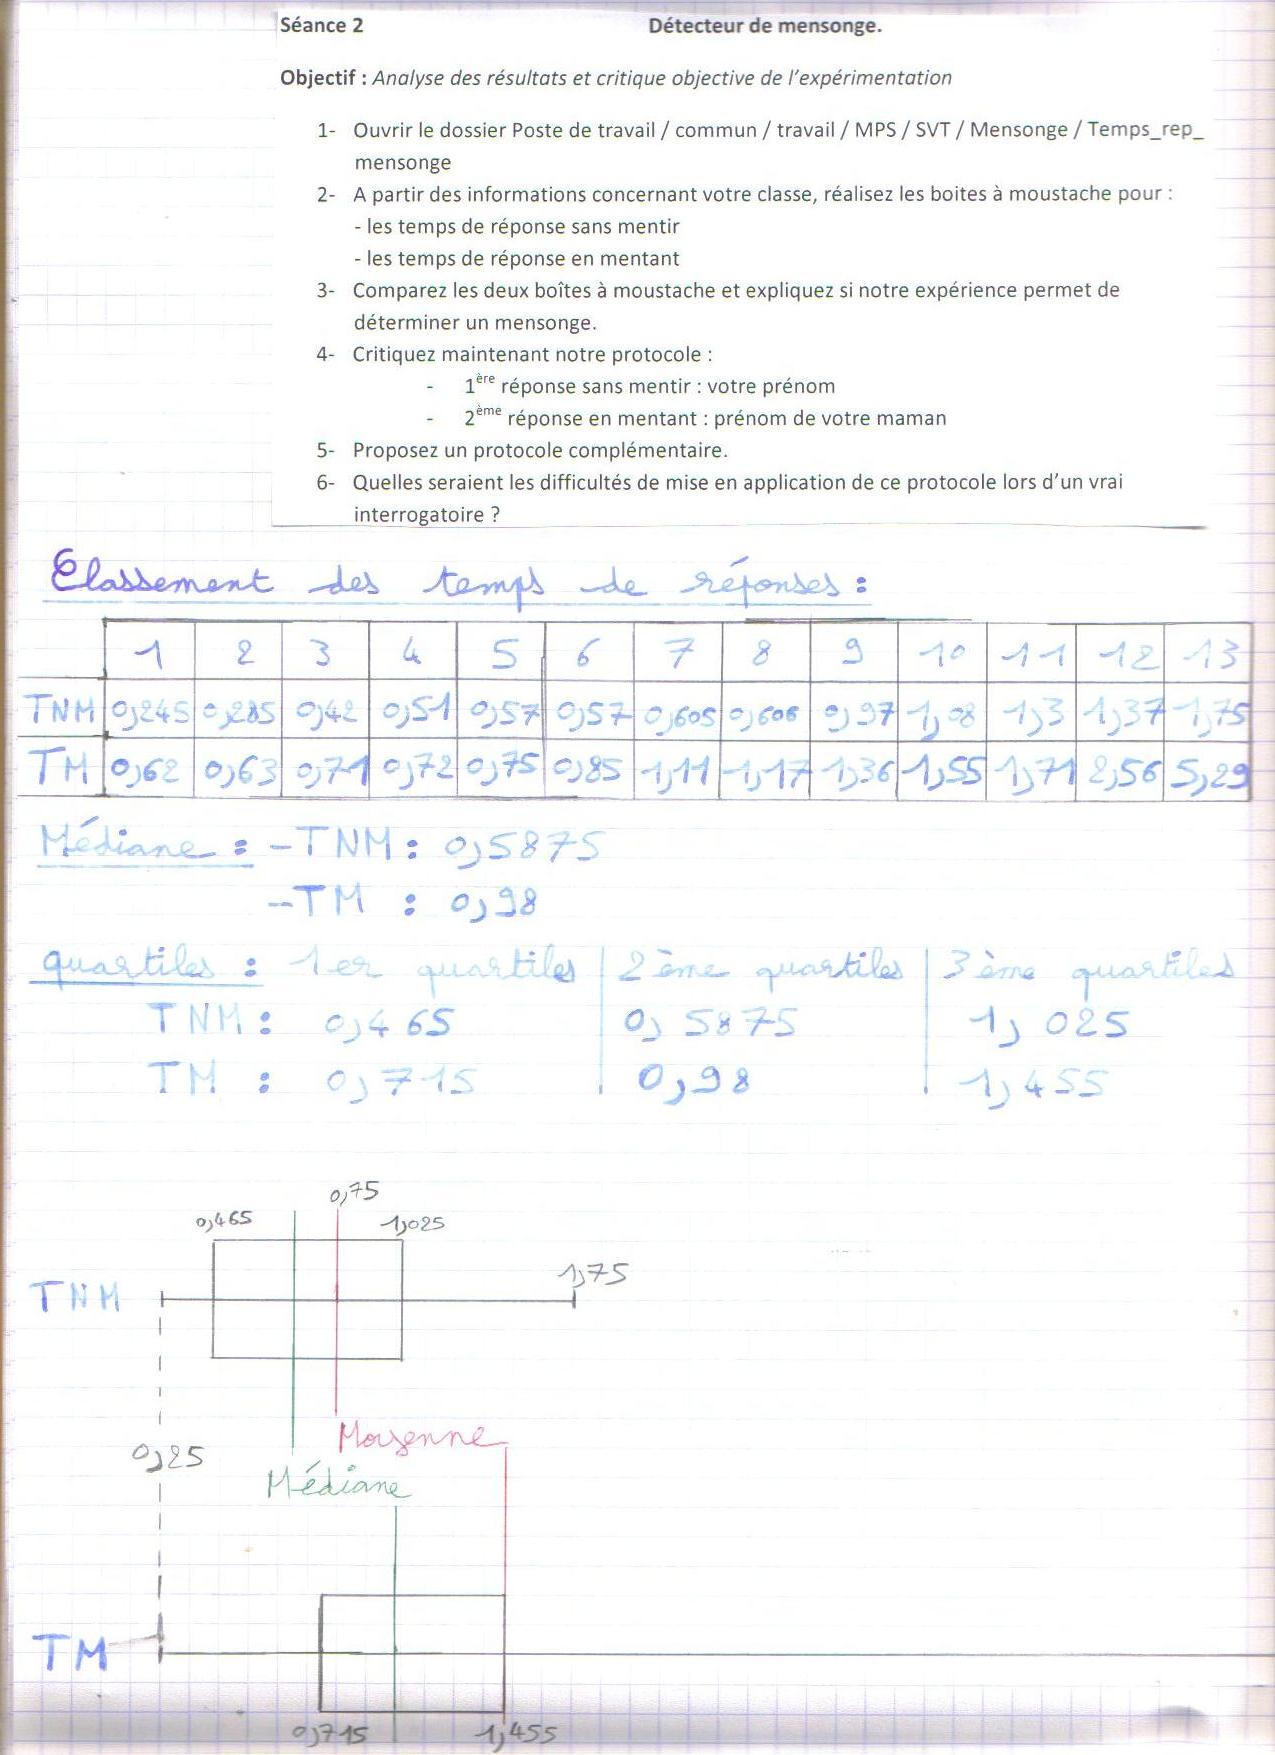 Séance 2 Détecteur de mensonge.
Objectif : Analyse des résultats et critique objective de l'expérimentation
1- Ouvrir le dossier Poste de travail / commun / travail / MPS / SVT / Mensonge / Temps_rep_
mensonge
2- A partir des informations concernant votre classe, réalisez les boites à moustache pour :
- les temps de réponse sans mentir
- les temps de réponse en mentant
3- Comparez les deux boîtes à moustache et expliquez si notre expérience permet de
déterminer un mensonge.
4- Critiquez maintenant notre protocole :
- 1ère réponse sans mentir : votre prénom
- 2ème réponse en mentant : prénom de votre maman
5- Proposez un protocole complémentaire.
6- Quelles seraient les difficultés de mise en application de ce protocole lors d'un vrai
interrogatoire ?
Classement des temps de réponses :
1 2 3 4 5 6 7 8 9 10 11 12 13
TNM 0,245 0,285 0,42 0,51 0,57 0,57 0,605 0,606 0,97 1,08 1,3 1,37 1,75
TM 0,62 0,63 0,71 0,72 0,75 0,85 1,11 1,17 1,36 1,55 1,71 2,56 5,29
Médiane : - TNM : 0,5875
- TM : 0,98
quartiles : 1er quartiles 2ème quartiles 3ème quartiles
TNM : 0,465 0,5875 1,025
TM : 0,715 0,98 1,455
0,75
0,465 1,025
1,75
TNM
Moyenne
0,25
Médiane
TM
0,715 1,455